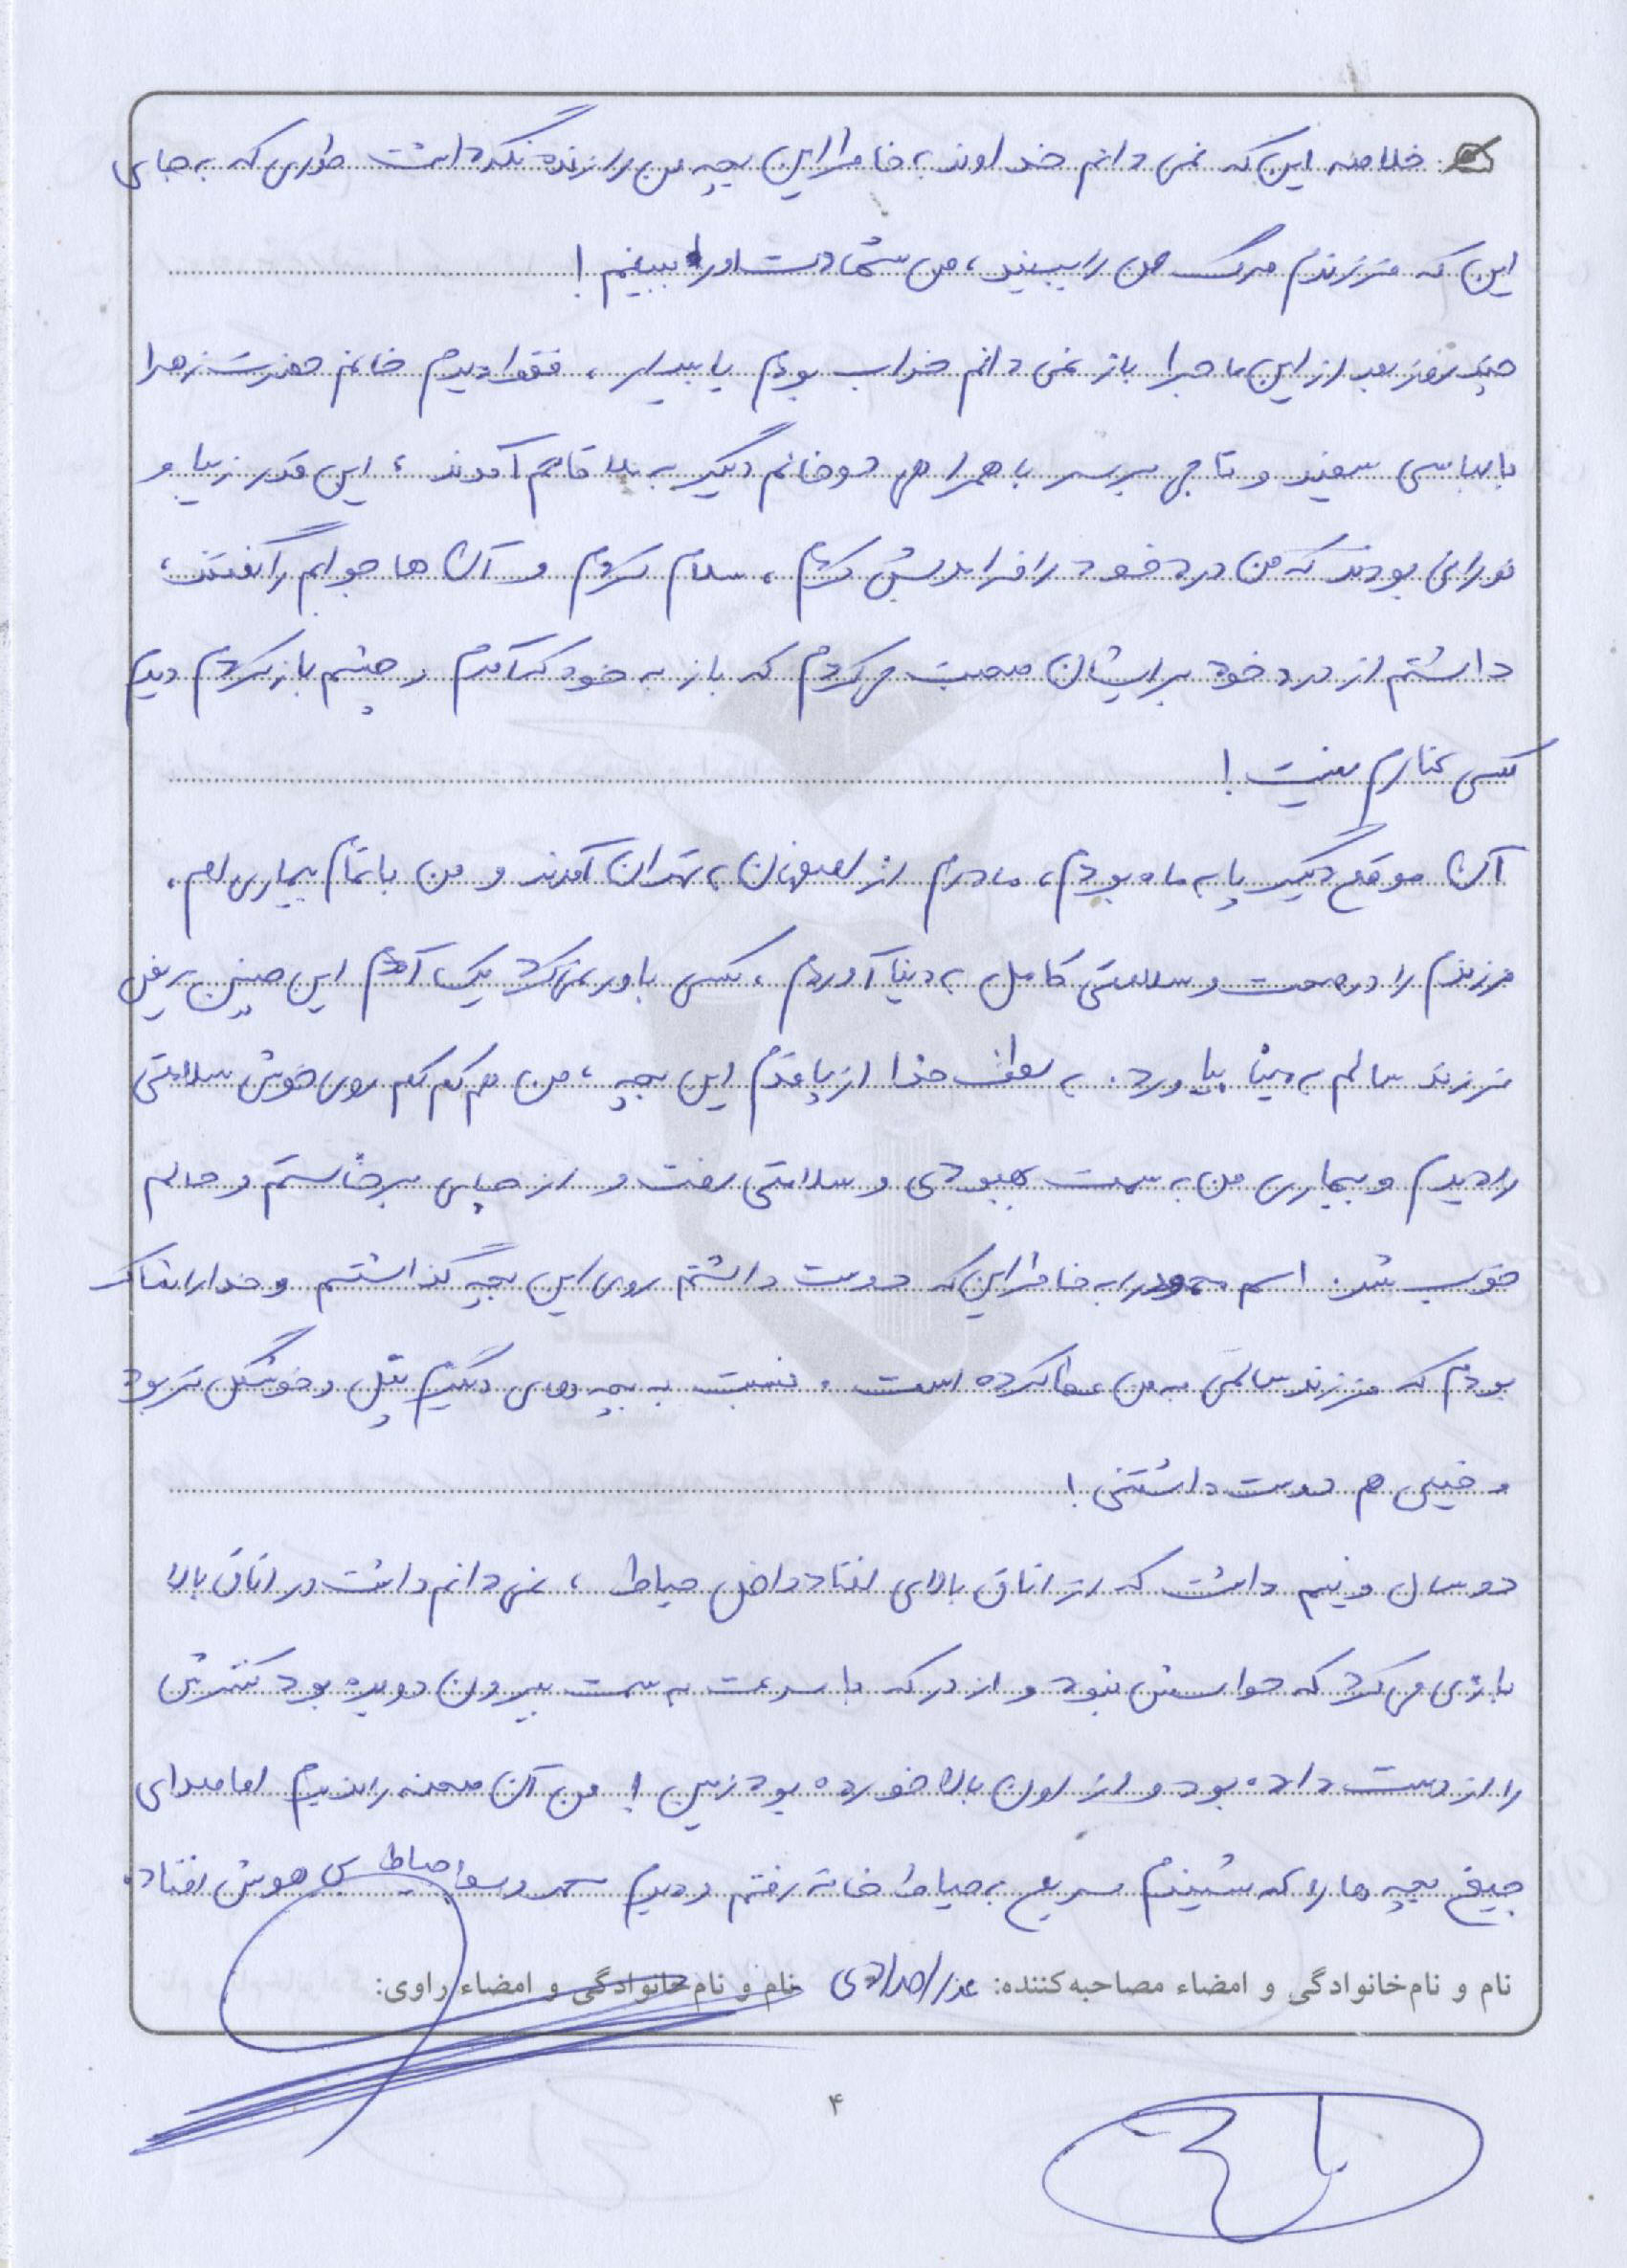 خلاصه این که نمی دانم خداوند به خاطر این بچه من را زنده نگه داشت طوری که به جای
این که فرزندم مرگ من را ببیند، من شهادت او را ببینم!
چند روز بعد از این ماجرا باز نمی دانم خواب بودم یا بیدار، فقط دیدم خانم حضرت زهرا
با لباسی سفید و تاجی بر سر با همراهی دو خانم دیگر به ملاقاتم آمدند؛ این قدر زیبا و
نورانی بودند که من درد خود را فراموش کردم، سلام کردم و آن ها جوابم را گفتند،
داشتم از درد خود برایشان صحبت می کردم که باز به خود که آمدم و چشم باز کردم دیدم
کسی کنارم نیست!
آن موقع دیگر پا به ماه بودم، مادرم از اصفهان به تهران آمدند و من با تمام بیماری ام،
فرزندم را در صحت و سلامتی کامل به دنیا آوردم، کسی باور نمی کرد یک آدم این چنین مریض
فرزند سالم به دنیا بیاورد. به لطف خدا از پا قدم این بچه، من هم کم کم روی خوش سلامتی
را دیدم و بیماری من به سمت بهبودی و سلامتی رفت و از جای برخاستم و حالم
خوب شد. اسم محمود را به خاطر این که دوست داشتم روی این بچه گذاشتم و خدا را شاکر
بودم که فرزند سالمی به من عطا کرده است. نسبت به بچه های دیگرم تپل و خوشگل تر بود
و خیلی هم دوست داشتنی!
دو سال و نیم داشت که از اتاق بالای افتاد داخل حیاط، نمی دانم داشت در اتاق بالا
بازی می کرد که حواسش نبود و از در که با سرعت به سمت بیرون دویده بود کنترلش
را از دست داده بود و از اون بالا خورده بود زمین! من آن صحنه را ندیدم اما صدای
جیغ بچه ها را که شنیدم سریع به حیاط خانه رفتم و دیدم محمد وسط حیاط بی هوش افتاده.
نام و نام‌خانوادگی و امضاء مصاحبه‌کننده: عذرا نام و نام‌خانوادگی و امضاء راوی:
۴